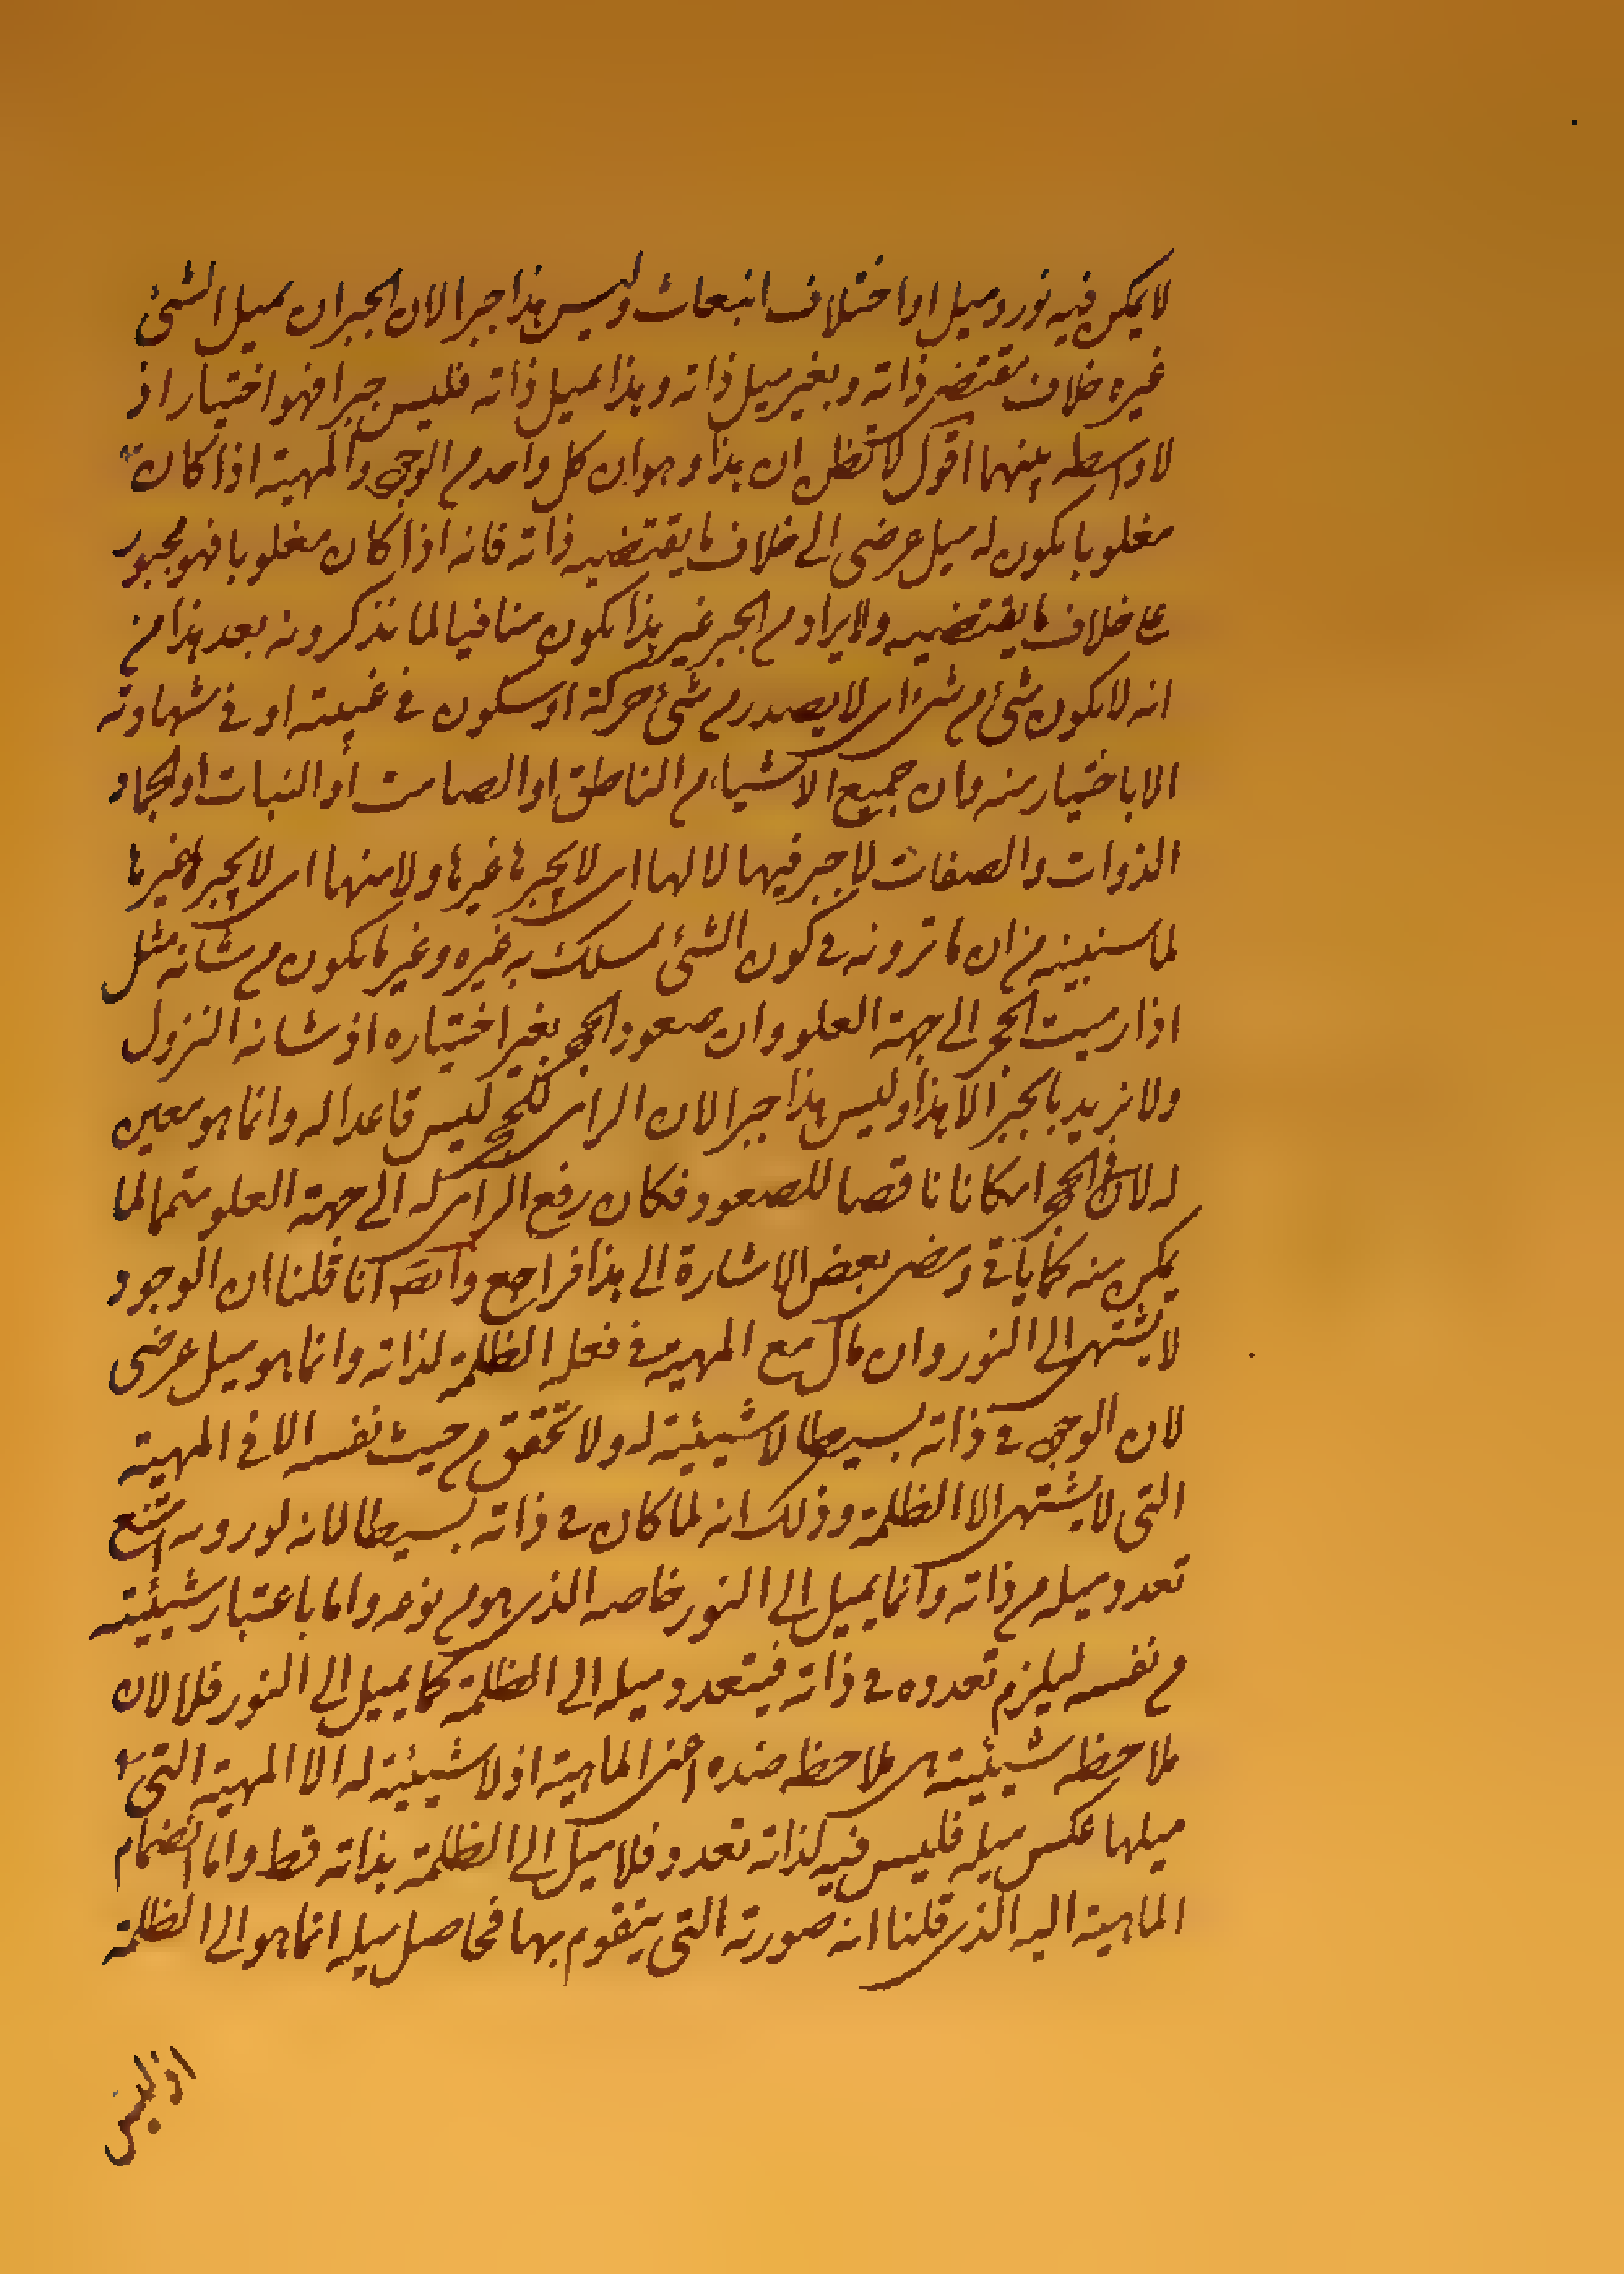 لا يمكن فيه نور وميل او اختلاف انبعاث وليس هذا جبرا لان الجبر ان يميل الشئ
غيره خلاف مقتضى ذاته وبغير ميل ذاته وهذا يميل ذاته فليس جبرا فهو اختيار اذ
لا واسطه بينهما اقول لا تظن ان هذا وهو ان كل واحد م الوجود والمهية اذا كان
مغلوبا يكون له ميل عرضى الى خلاف ما يقتضيه ذاته فانه اذا كان مغلوبا فهو مجبور
على خلاف ما يقتضيه ولا يراد م الجبر غير هذا يكون منافيا لما نذكرونه بعد هذا من
انه لا يكون شئ م شئ اى لا يصدر م شئ حركة او سكون فى غيبته او فى شهادته
الا باختيار منه وان جميع الاشياء م الناطق او الصامت او النبات او الجماد
الذوات والصفات لا جبر فيها لا لها اى لا يجبرها غيرها ولا منها اى لا يجبر غيرها
لما سنبينه من ان ما ترونه فى كون الشئ يسلك به غيره وغير ما يكون م شأنه مثل
اذا رميت الحجر الى جهة العلو وان صعود الحجر بغير اختياره اذ شانه النزول
ولا نريد بالجبر الا هذا وليس هذا جبرا لان الرامى للحجر ليس قاعدا له وانما هو معين
له لان فى الحجر امكانا ناقصا للصعود فكان رفع الرامى له الى جهة العلو متمما لما
يمكن منه كما ياتى ومضى بعض الاشارة الى هذا فراجع وايضا انا قلنا ان الوجود
لا يشتهى الى النور وان مال مع المهية فى فعله الظلمة لذاته وانما هو ميل عرضى
لان الوجود فى ذاته بسيطا لا شيئية له ولا تحقق م حيث نفسه الا فى المهية
التى لا يشتهى الا الظلمة وذلك انه لما كان فى ذاته بسيطا لانه نور وبه امتنع
تعدد ميله م ذاته وانما يميل الى النور خاصه الذى هو م نوعه واما باعتبار شيئيته
م نفسه ليلزم تعدده فى ذاته فيتعدد ميله الى الظلمة كما يميل الى النور فلا لان
ملاحظه شيئيته هى ملاحظه ضده اعنى الماهية اذ لا شيئية له الا المهية التى
ميلها عكس ميله فليس فيه لذاته تعدد فلا ميل الى الظلمة بذاته قط واما انضمام
الماهية اليه الذى قلنا انه صورته التى يتقوم بها فحاصل ميله انما هو الى الظلمة
اذ ليس